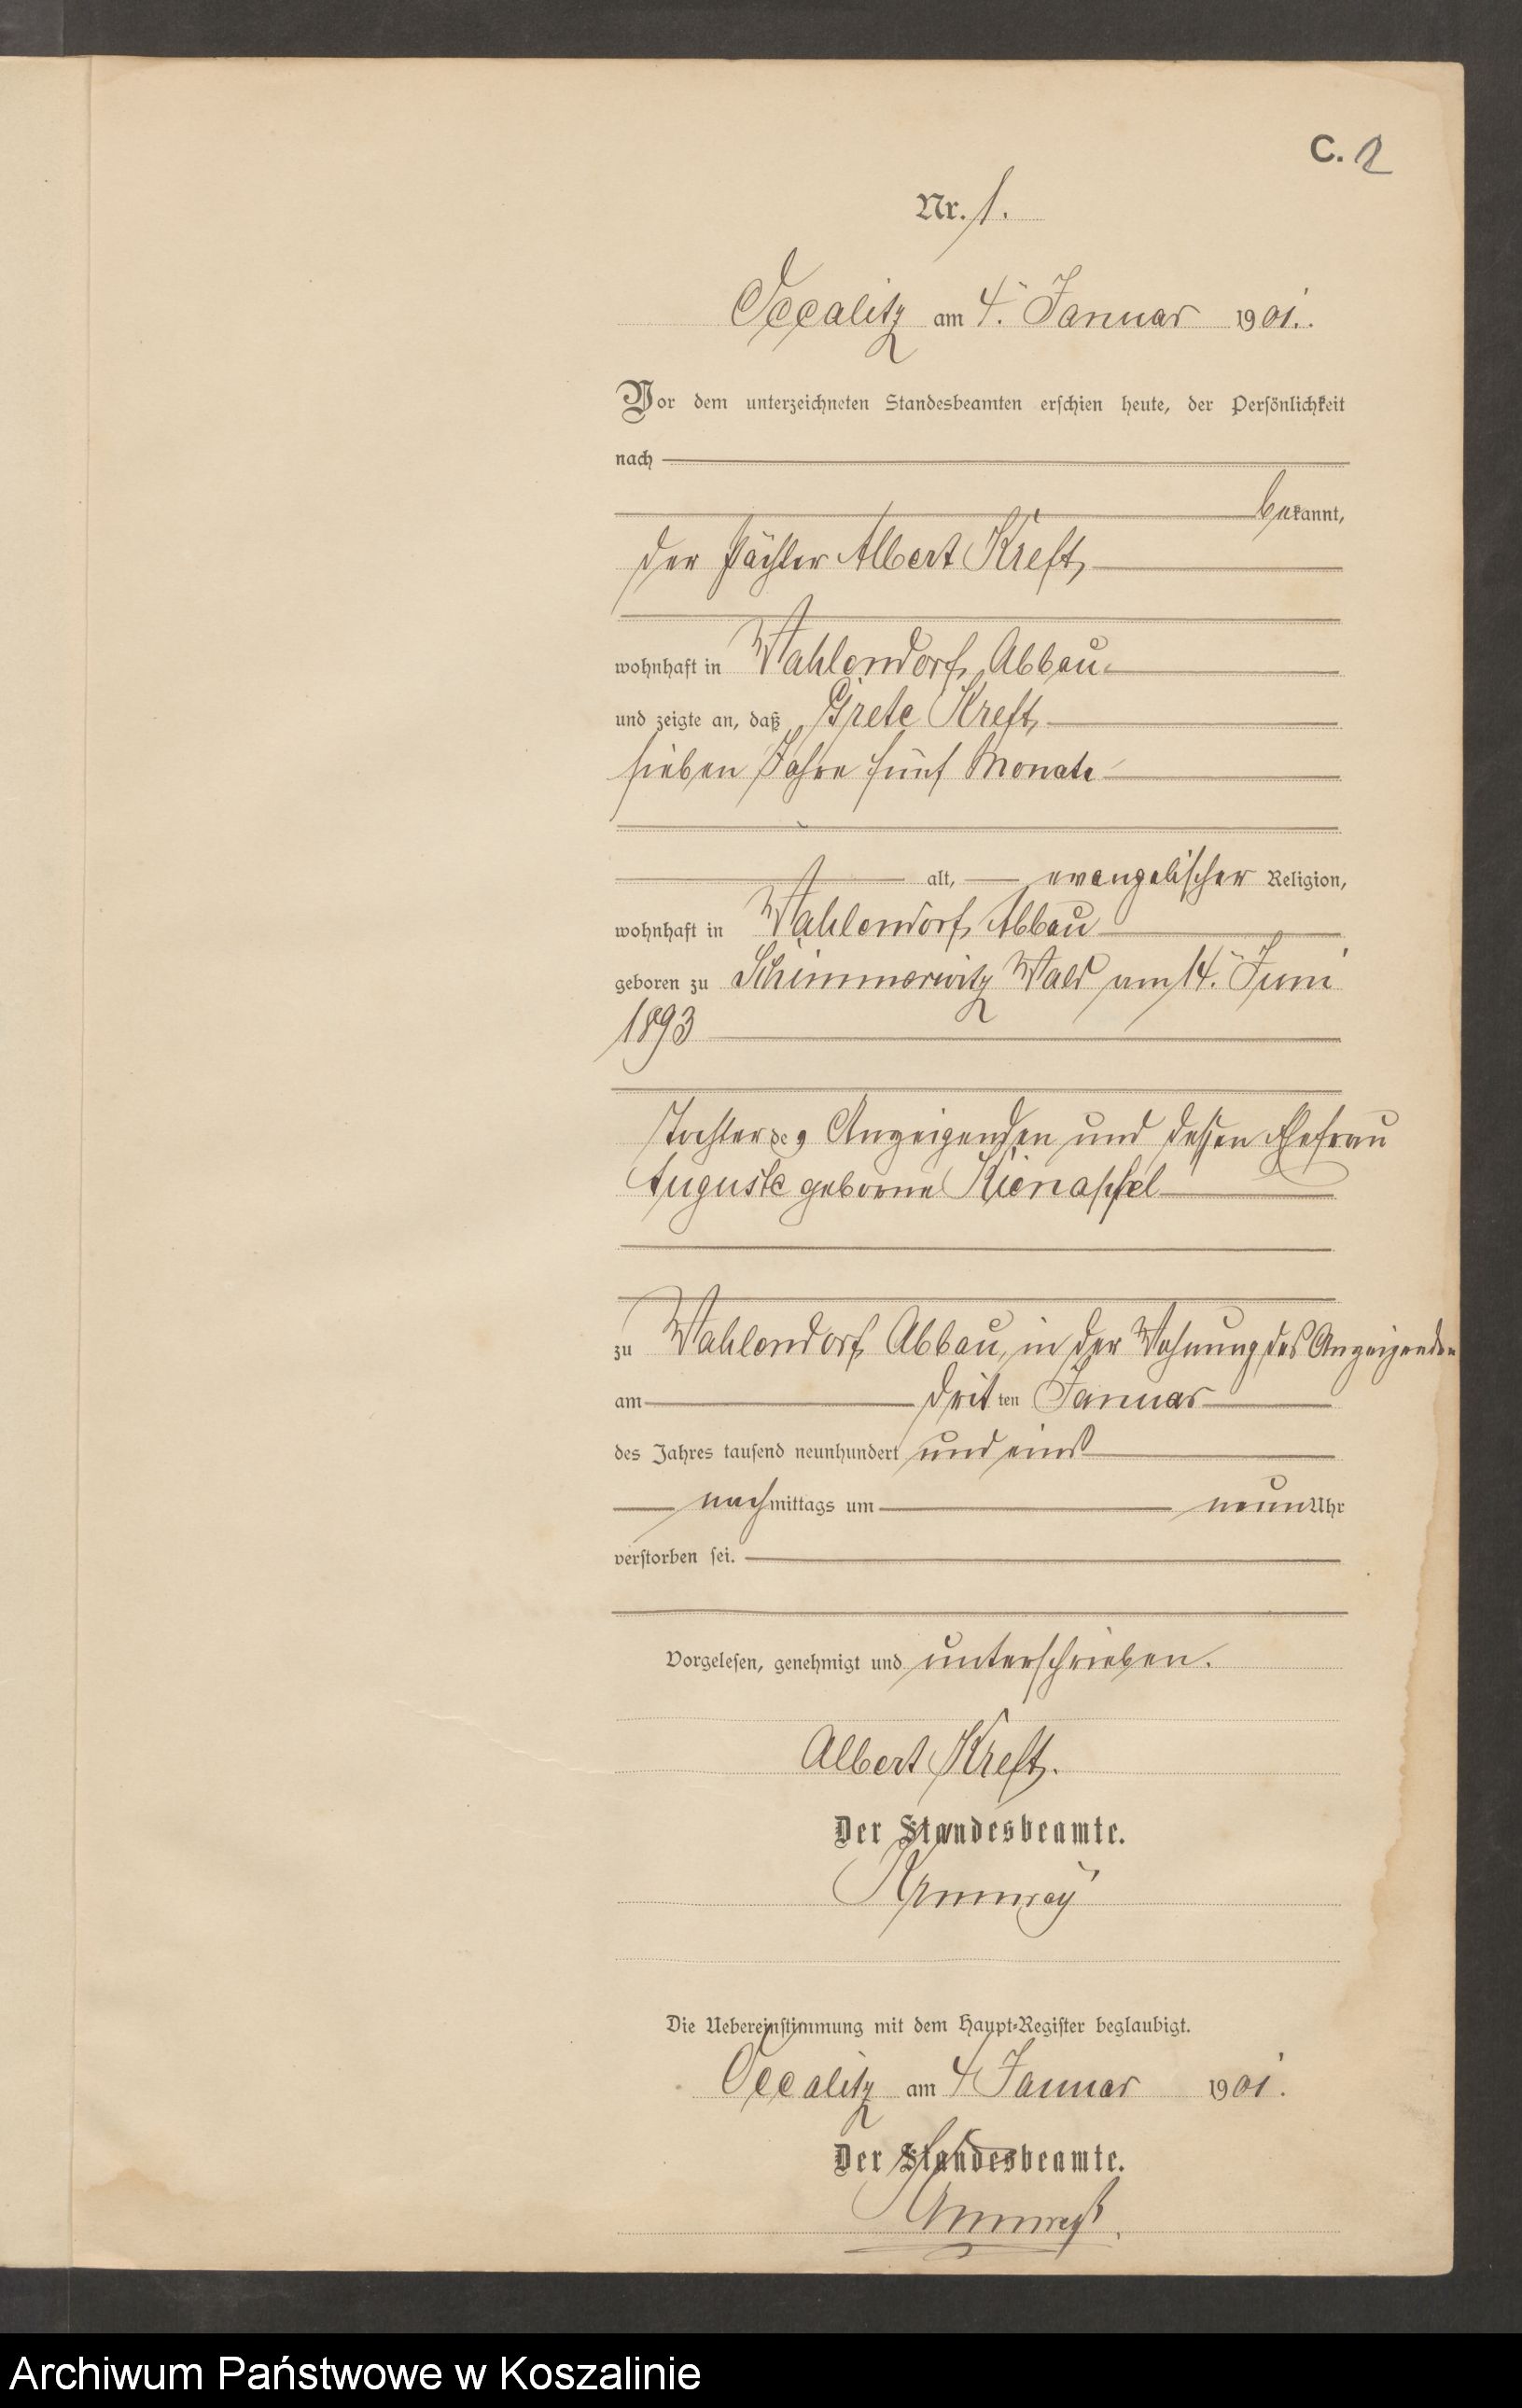 C. 2
Nr. 1.
Occalitz am 4. Januar 1901.
Vor dem unterzeichneten Standesbeamten erschien heute, der Persönlichkeit
nach
bekannt,
der Pächter Albert Kreft,
wohnhaft in Wahlendorf, Abbau
und zeigte an, daß Grete Kreft,
sieben Jahre fünf Monate
alt, evangelischer Religion,
wohnhaft in Wahlendorf, Abbau
geboren zu Schimmerwitz Wald am 14. Juni
1893
Tochter des Anzeigenden und dessen Ehefrau
Auguste geborne Kienapfel
zu Wahlendorf, Abbau, in der Wohnung des Anzeigenden
am dritten Januar
des Jahres tausend neunhundert und eins
nachmittags um neun Uhr
verstorben sei.
Vorgelesen, genehmigt und unterschrieben.
Albert Kreft.
Der Standesbeamte.
Die Uebereinstimmung mit dem Haupt-Register beglaubigt.
Occalitz am 4 Januar 1901.
Der Standesbeamte.
Archiwum Państwowe w Koszalinie